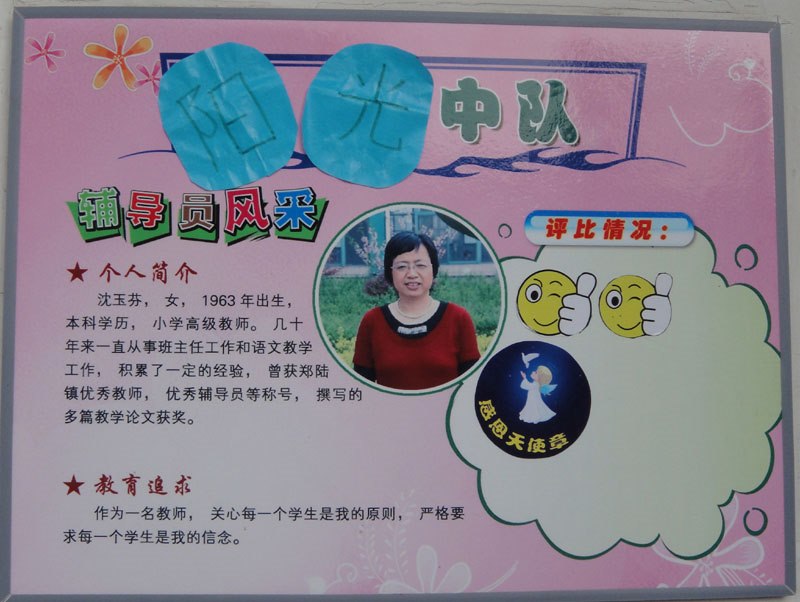 阳光中队
辅导员风采
★ 个人简介
沈玉芬， 女， 1963 年出生，
本科学历， 小学高级教师。 几十
年来一直从事班主任工作和语文教学
工作， 积累了一定的经验， 曾获郑陆
镇优秀教师， 优秀辅导员等称号， 撰写的
多篇教学论文获奖。
★ 教育追求
作为一名教师， 关心每一个学生是我的原则， 严格要
求每一个学生是我的信念。
评比情况：
感恩天使章